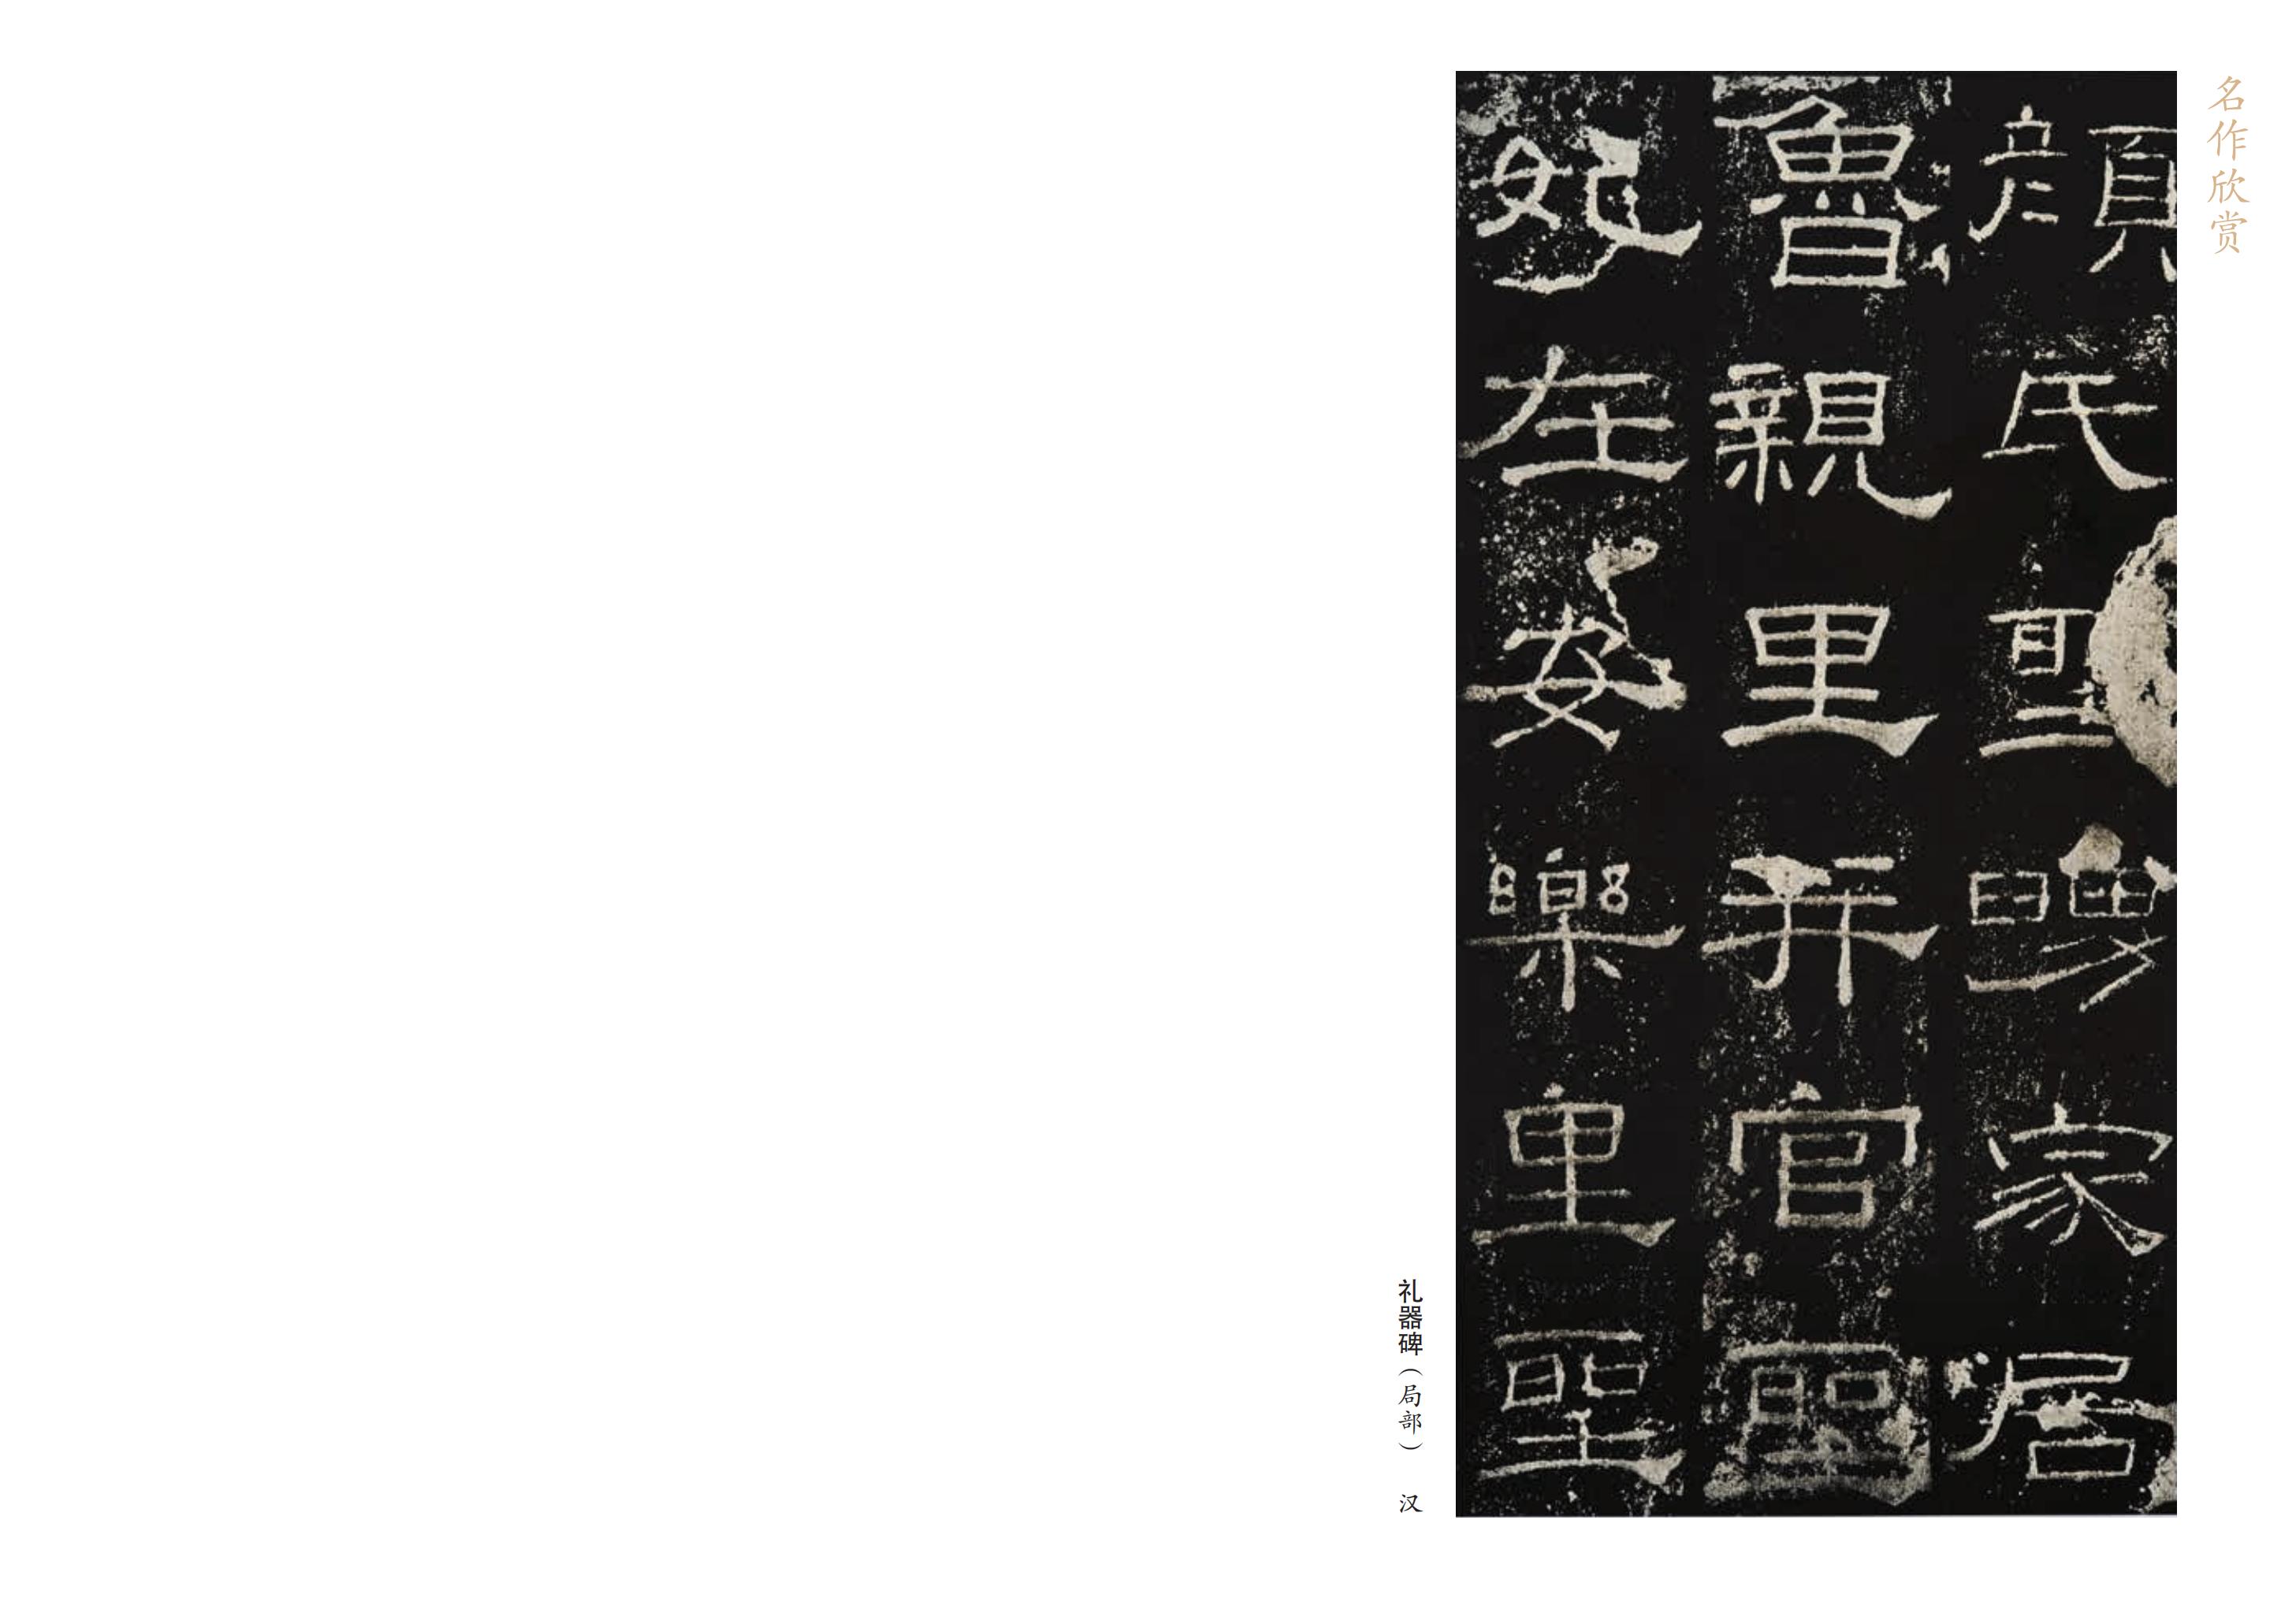 名作欣赏
顏氏聖舅家居
魯親里并官聖
妃在安樂里聖
礼器碑（局部） 汉